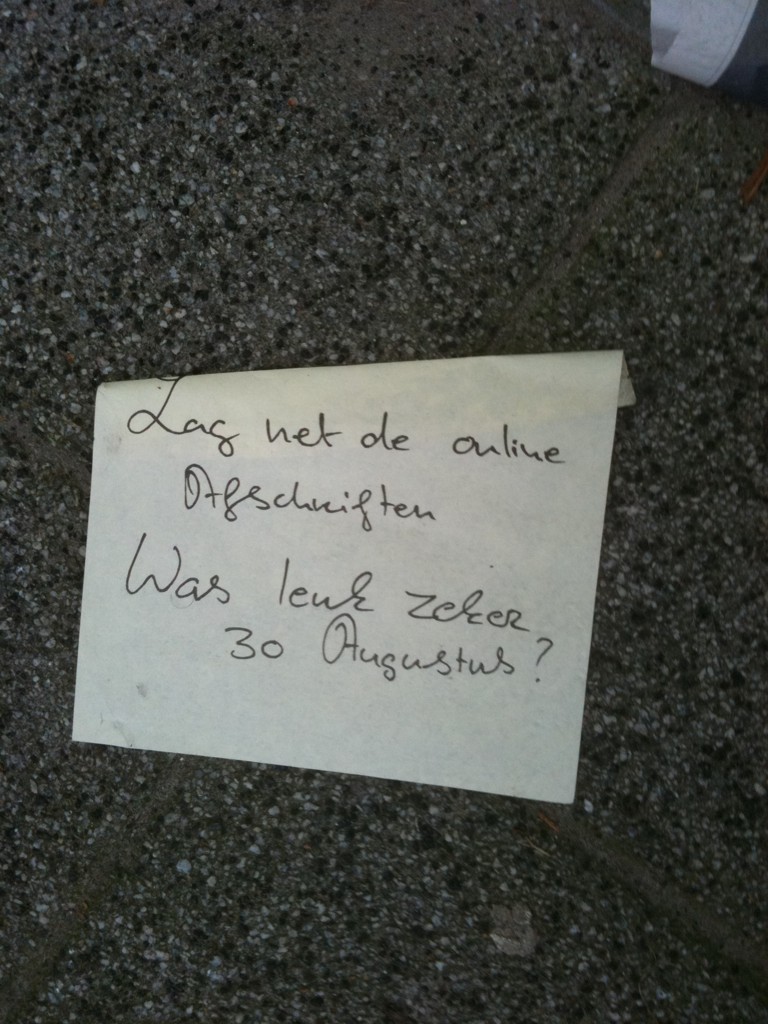 Zag net de online
Afschriften
Was leuk zeker
30 Augustus?